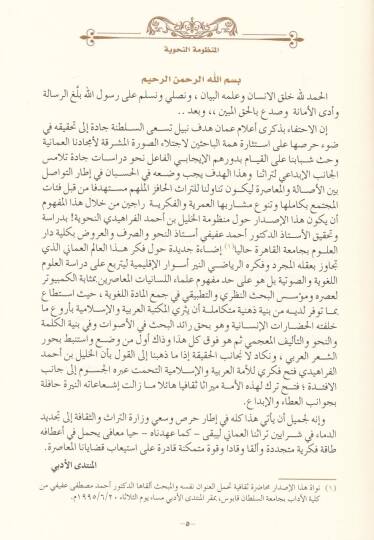 المنظومة النحوية
بسم الله الرحمن الرحيم
الحمد لله خلق الانسان وعلمه البيان ، ونصلي ونسلم على رسول الله بلّغ الرسالة
وأدى الأمانة وصدع بالحق المبين ،، وبعد ..
إن الاحتفاء بذكرى أعلام عمان هدف نبيل تسعى السلطنة جادة إلى تحقيقه في
ضوء حرصها على استثارة همة الباحثين لاجتلاء الصورة المشرقة لأمجادنا العمانية
وحث شبابنا على القيام بدورهم الإيجابي الفاعل نحو دراسات جادة تلامس
الجانب الإبداعي لتراثنا وهذا الهدف يجب وضعه في الحسبان في إطار التواصل
بين الأصالة والمعاصرة ليكون تناولنا للتراث الحافز الملهم مستهدفا من قبل فئات
المجتمع بكاملها وتنوع مشاربها العمرية والفكرية راجين من خلال هذا المفهوم
أن يكون هذا الإصدار حول منظومة الخليل بن أحمد الفراهيدي النحوية/ بدراسة
وتحقيق الأستاذ الدكتور أحمد عفيفي أستاذ النحو والصرف والعروض بكلية دار
العلوم بجامعة القاهرة حاليا (١) إضاءة جديدة حول فكر هذا العالم العماني الذي
تجاوز بعقله المجرد وفكره الرياضي النير أسوار الإقليمية ليتربع على دراسة العلوم
اللغوية والصوتية بل هو على حد مفهوم علماء اللسانيات المعاصرين بمثابة الكمبيوتر
لعصره ومؤسس البحث النظري والتطبيقي في جمع المادة اللغوية ، حيث استطاع
بما توفر لديه من بنية ذهنية متكاملة أن يثري المكتبة العربية والإسلامية بأروع ما
خلفته الحضارات الإنسانية وهو بحق رائد البحث في الأصوات وفي بنية الكلمة
والنحو والتأليف المعجمي ثم هو فوق كل هذا وذاك أول من وضع واستنبط بحور
الشعر العربي ، ونكاد لا نجانب الحقيقة إذا ما ذهبنا إلى القول بأن الخليل بن أحمد
الفراهيدي فتح فكري للأمة العربية والإسلامية التحمت عبره الجسوم إلى جانب
الافئدة ؛ فتح ترك لهذه الأمة ميراثا ثقافيا هائلا ما زالت إشعاعاته النيرة حافلة
بجوانب العطاء والإبداع.
وإنه لجميل أن يأتي هذا كله في إطار حرص وسعي وزارة التراث والثقافة إلى تجديد
الدماء في شرايين تراثنا العماني ليبقى - كما عهدناه - حيا معافى يحمل في أعطافه
طاقة فكرية متجددة وألقا وقادا وقوة متمكنة قادرة على استيعاب قضايانا المعاصرة.
المنتدى الأدبي
(١) نواة هذا الإصدار محاضرة ثقافية تحمل العنوان نفسه والمبحث ألقاها الدكتور أحمد مصطفى عفيفي من
كلية الآداب بجامعة السلطان قابوس، بمقر المنتدى الأدبي مساء يوم الثلاثاء ١٩٩٥/٦/٢٠م.
-٥-